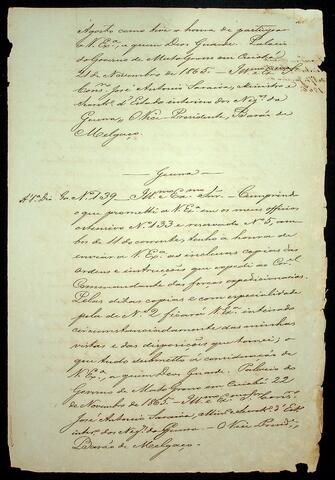 Agosto como tive a honra de participar
a V. Exª., a quem Deos Guarde. Palacio
do Governo de Mato Grosso em Cuiabá
21 de Novembro de 1865.- Illmo. e Exmo. Snr.
Consº. José Antonio Saraiva, Ministro e
Secretº. d'Estado interino dos Negº. da
Guerra, O Vice Presidente, Barão de
Melgaço.
Guerra
Aª. Dir Ga. Nº. 139 Illmo. e Exmo. Snr.- Cumprindo
o que prometti a V. Exª. em os meus officios
ostensivo Nº. 133 e reservado Nº. 5, am-
bos de 11 do corrente, tenho a honra de
enviar a V. Exª. as inclusas copias das
ordens e instrucções que expedi ao Cor.el
Commandante das forças expedicionarias.
Pelas ditas copias e com especialidade
pela de Nº. 2 ficará V. Exª. inteirado
circunstanciadamente das minhas
vistas e das disposições que tomei; o
que tudo submetto á consideração de
V. Exª., a quem Deos Guarde. Palacio do
Governo de Mato Grosso em Cuiabá 22
de Novembro de 1865.- Illmo. e Exmo. Snr. Consº.
José Antonio Saraiva, Minº. e Secretº. d'Estº.
interº. dos Negº. da Guerra - O Vice Presidº.,
Barão de Melgaço.